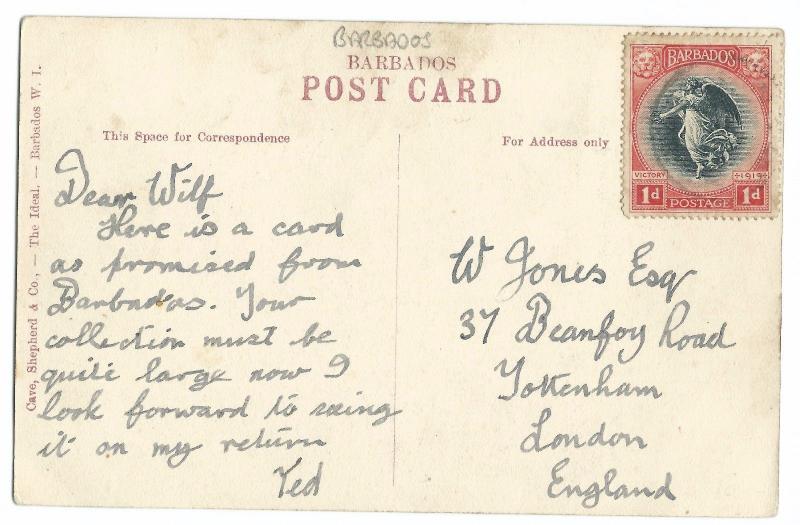 BARBADOS
BARBADOS
POST CARD
BARBADOS
VICTORY 1919
1d 1d
POSTAGE
This Space for Correspondence
For Address only
Cave, Shepherd & Co., — The Ideal. — Barbados W. I.
Dear Wilf
Here is a card
as promised from
Barbados. Your
collection must be
quite large now I
look forward to seeing
it on my return
Ted
W Jones Esq
37 Beanfoy Road
Tottenham
London
England